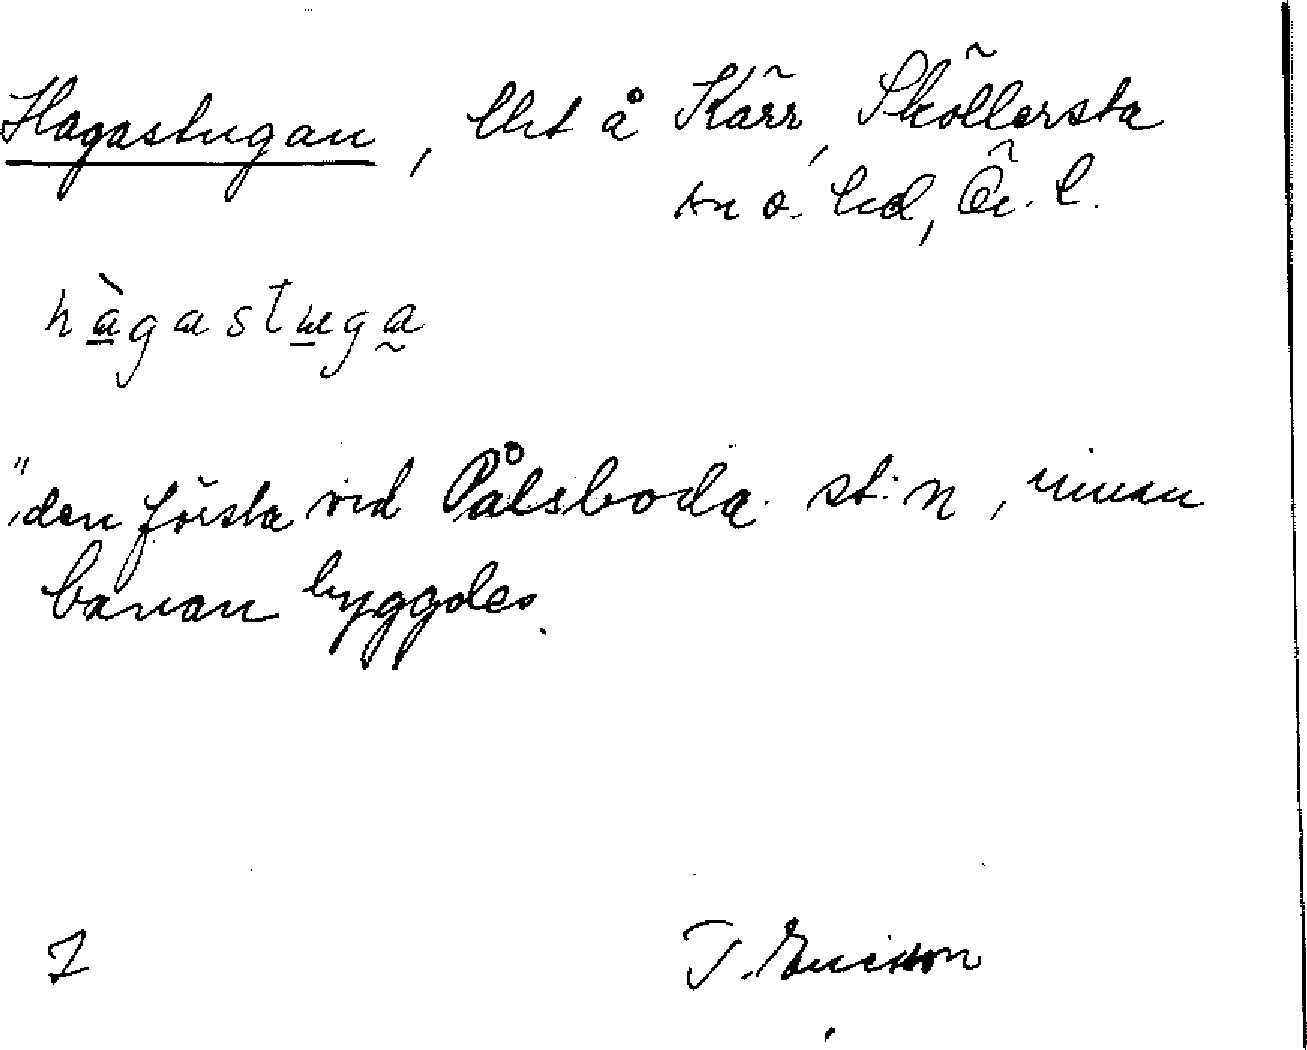 Hagastugan, lht å Kärr, Sköllersta
sn o. hd, Ör. l.
hàgastuga
"den första vid Pålsboda st:n, innan
banan byggdes.
J. Ericson